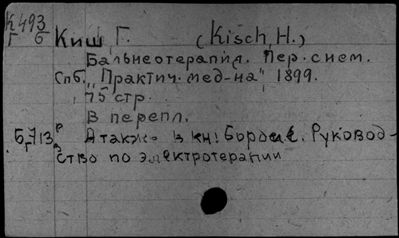 К 493
Г 6
Киш Г. (Kisch, H.)
Бальнеотерапия. Пер. с нем.
Спб. "Практич. мед-на", 1899.
75 стр.
В перепл.
А также в кн:  Руковод-
ство по электротерапии